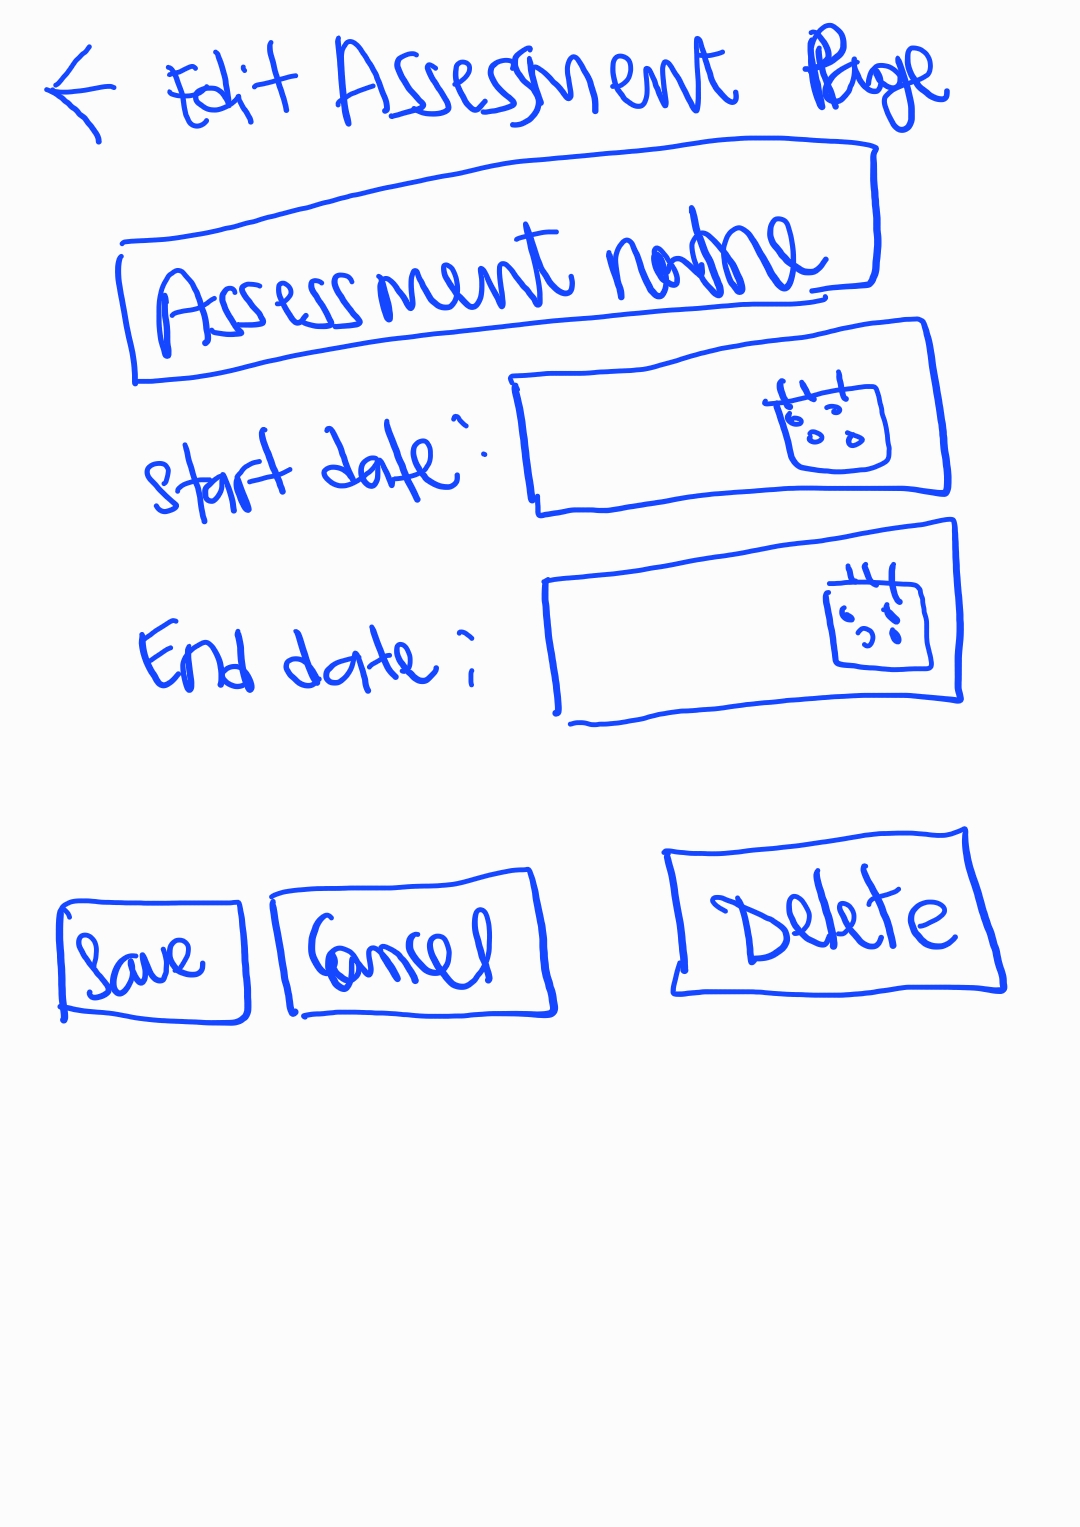 ← Edit Assessment Page
Assessment name
Start date:
End date:
Save Cancel Delete